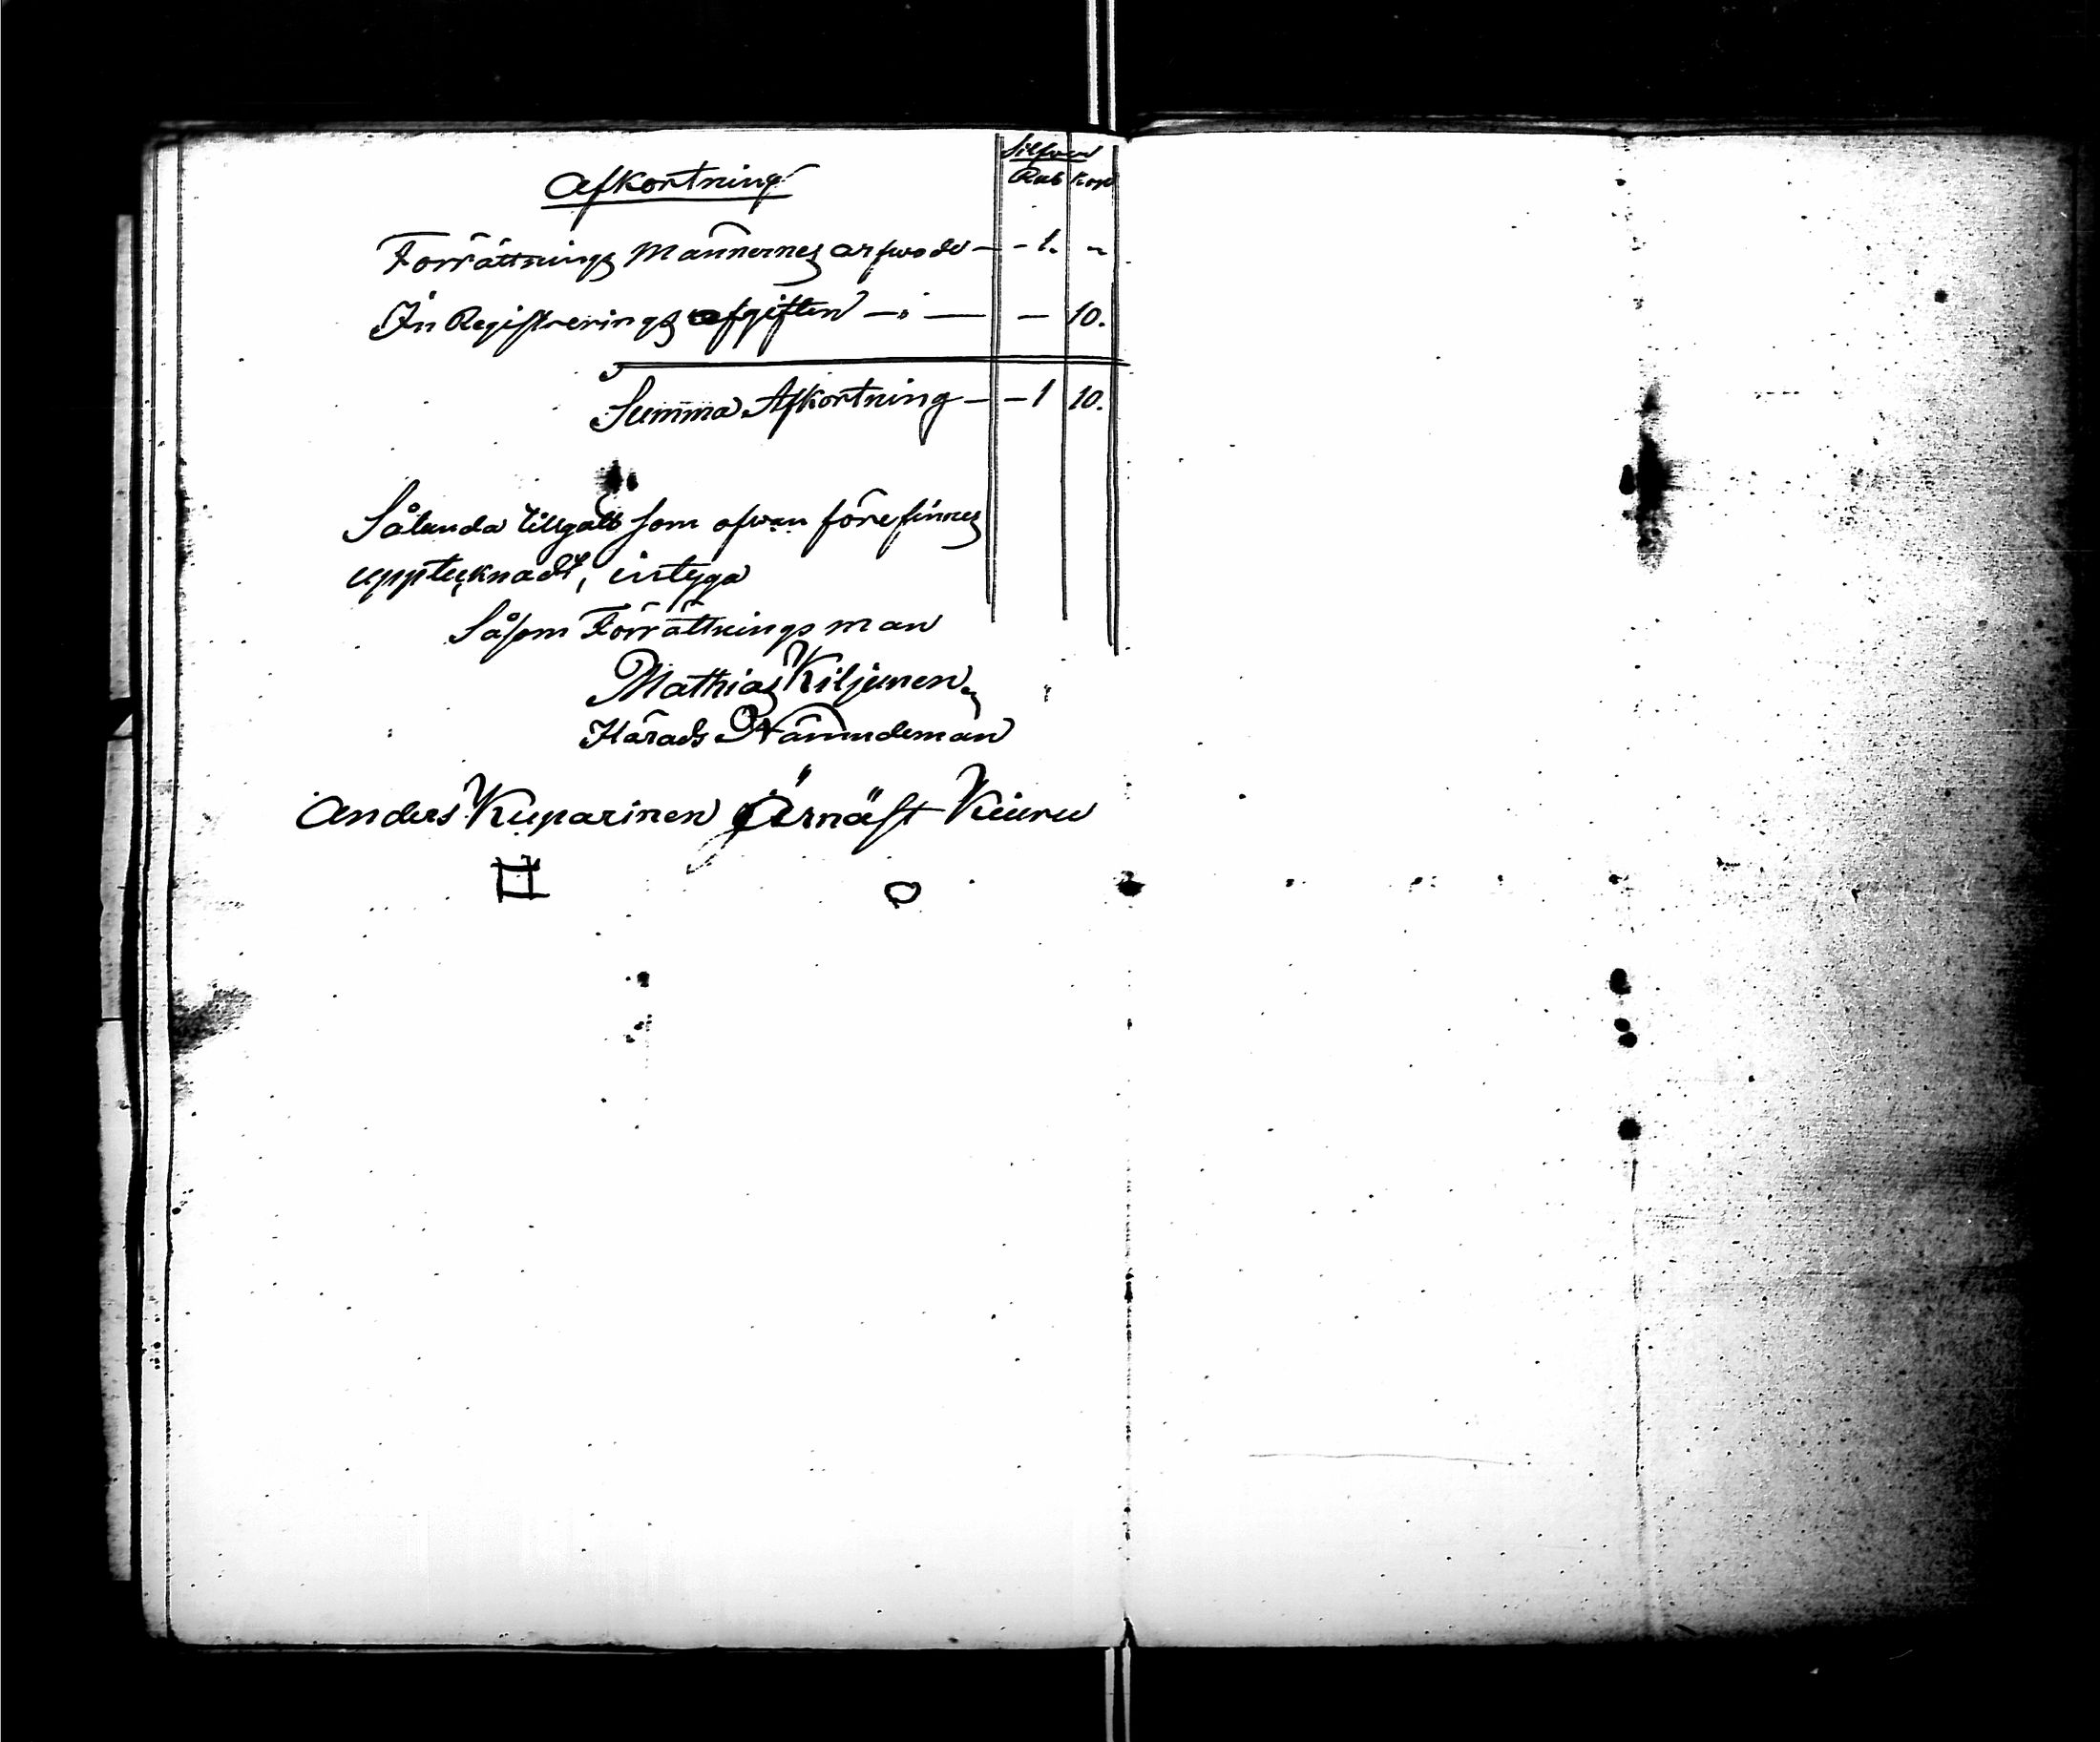 Silfver
Rub Kop
Afkortning
Förrättnings Männernes arfwode — - 1. "
In Registrerings afgiften — " — — 10.
Summa Afkortning — - 1 10.
Sålunda tillgått som ofvan förefinnes
upptecknadt, intyga
Såsom Förrättnings man
Mathias Kiljunen
Härads Nämndeman
Anders Kuparinen Ärnäst Kiuru